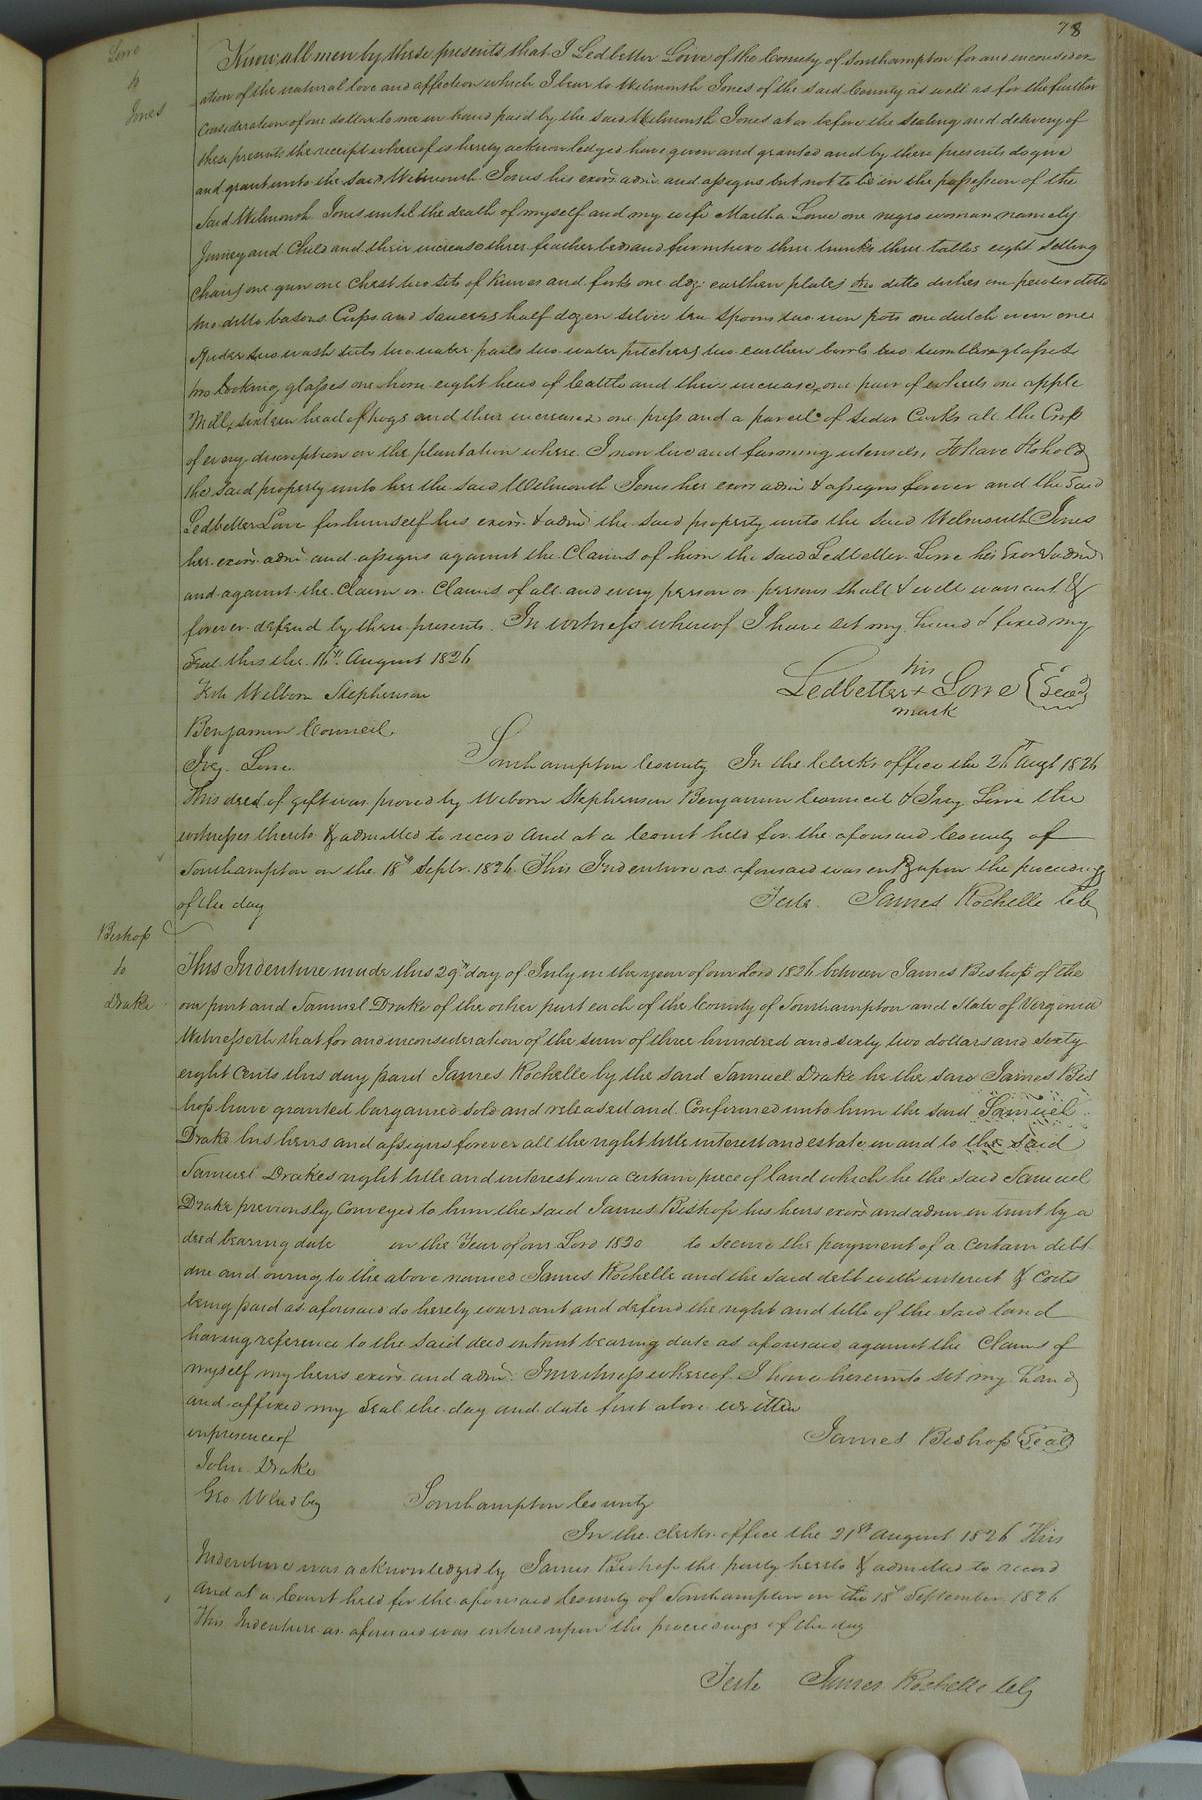 78
Lowe
to
Jones
Know all men by these presents that I Ledbetter Lowe of the County of Southampton for and in consider
ation of the natural love and affection which I bear to Wilmouth Jones of the said County as well as for the further
Consideration of one dollar to me in hand paid by the said Wilmouth Jones at or before the sealing and delivery of
these presents the receipt whereof is hereby acknowledged have given and granted and by these presents do give
and grant unto the said Wilmouth Jones his exors. admr. and assigns but not to be in the possession of the
Said Wilmouth Jones until the death of myself and my wife Martha Lowe one negro woman namely
and Child and their increase three feather beds and furniture three trunks three tables eight Setting
Chairs one gun one Chest two sets of Knives and forks one doz: earthen plates two ditto dishes one pewter ditto
two ditto basons Cups and saucers half dozen silver tea spoons two iron pots one dutch oven one
Spider two wash tubs two water pails two water pitchers two earthen bowls two tumbler glasses
two looking glasses one horse eight head of Cattle and their increase, one pair of wheels one apple
Mill, sixteen head of hogs and their increase one press and a parcel of Sider Casks all the Crop
of every discription on the plantation where I now live and farming utensils To have & to hold
the said property unto her the said Wilmouth Jones her exors admr & assigns forever and the Said
Ledbetter Lowe for himself his exors. & admr the said property unto the said Wilmouth Jones
her exors admr and assigns against the Claims of him the said Ledbetter Lowe his Exors & admr
and against the Claim or Claims of all and every person or persons shall & will warrant &
forever defend by these presents. In witness whereof I have set my hand & fixed my
Seal this the 16th. August 1826
his
Ledbetter + Lowe {Seal}
mark
Welborn Stephenson
Benjamin Council,
Lowe
Southampton County In the Clerks office the 21st Augt 1826
This deed of gift was proved by Weborn Stephenson Benjamin Council & Lowe the
witnesses thereto & admitted to record And at a Court held for the aforesaid County of
Southampton on the 18th Septr. 1826 This Indenture as aforesaid was entd upon the proceedings
of the day
Teste James Rochelle Clk
Bishop
to
Drake
This Indenture made this 29th day of July in the year of our Lord 1826 between James Bishop of the
one part and Samuel Drake of the other part each of the County of Southampton and State of Virginia
Witnesseth that for and in consideration of the sum of three hundred and sixty two dollars and sixty
eight Cents this day paid James Rochelle by the said Samuel Drake he the said James Bis
hop have granted bargained sold and released and Confirmed unto him the said Samuel
Drake his heirs and assigns forever all the right title interest and estate in and to the said
Samuel Drakes right title and interest in a certain piece of land which he the said Samuel
Drake previously Conveyed to him the said James Bishop his heirs exors and admr in trust by a
deed bearing date in the Year of our Lord 1820 to secure the payment of a certain debt
due and owing to the above named James Rochelle and the said debt with interest & Costs
being paid as aforesaid do hereby warrant and defend the right and title of the said land
having reference to the said deed in trust bearing date as aforesaid against the Claims of
myself my heirs exors. and admr. In witness whereof I have hereunto set my hand
and affixed my Seal the day and date first above written
in presence of
James Bishop {Seal}
John Drake
Geo.
Southampton County
In the clerks office the 21st August 1826 This
Indenture was acknowledged by James Bishop the party hereto & admitted to record
And at a Court held for the aforesaid County of Southampton on the 18th September 1826
This Indenture as aforesaid was entered upon the proceedings of the day
Teste James Rochelle Clk